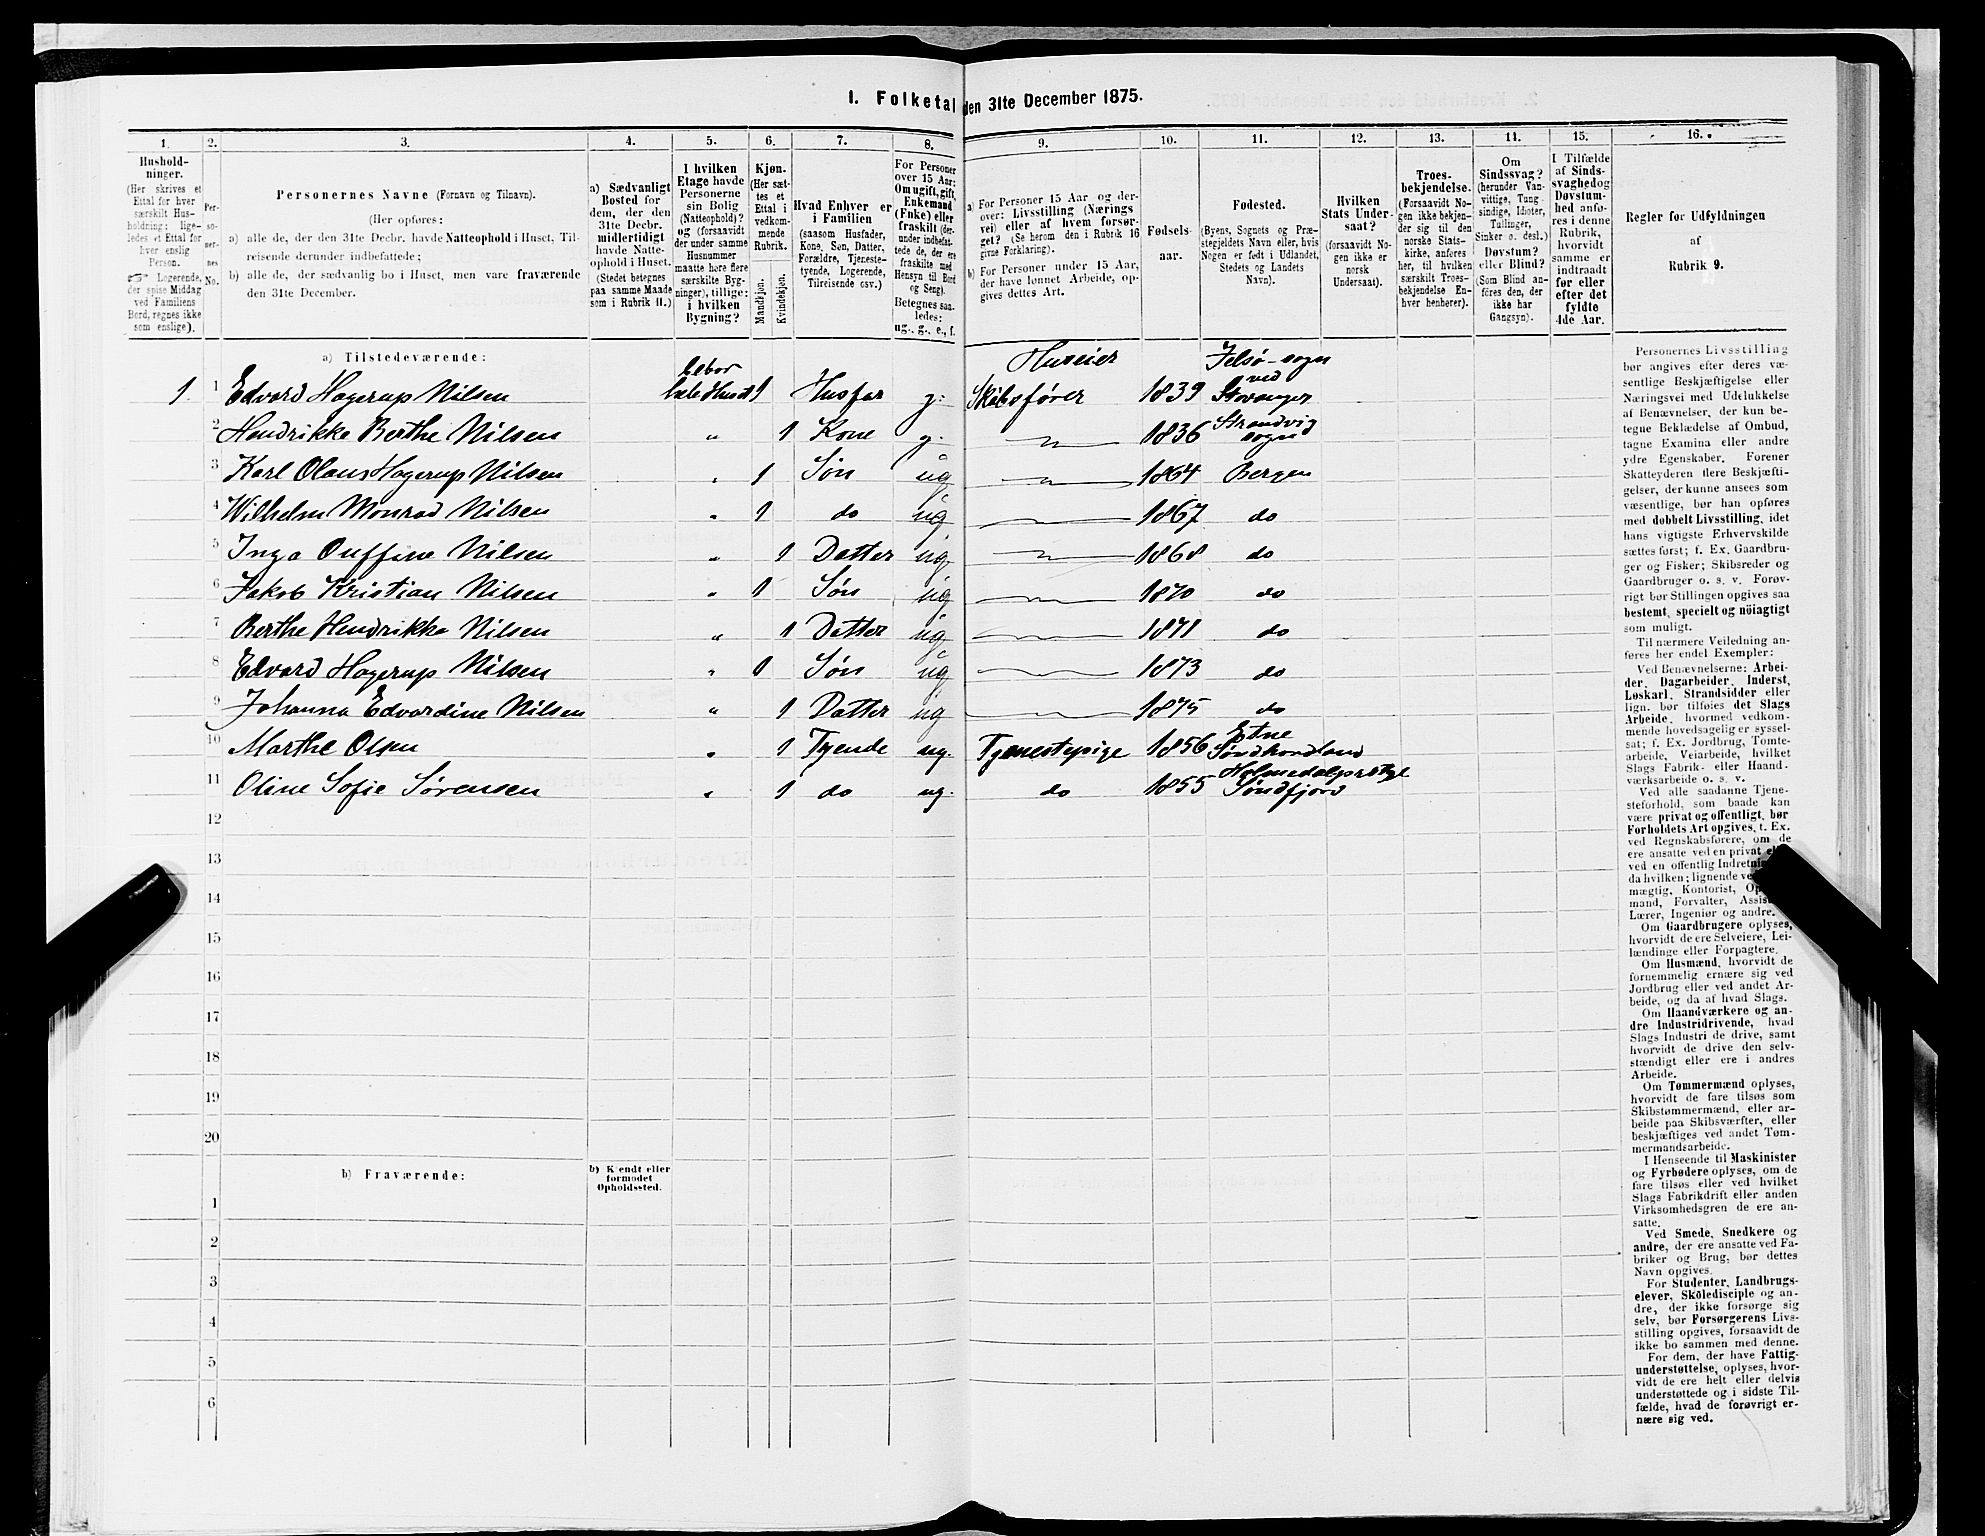 1. Folketal den 31te December 1875.
1. 2. 3. 4. 5. 6. 7. 8. 9. 10. 11. 12. 13. 14. 15. 16.
Hushold-
ninger.
(Her skrives et
Ettal for hver
særskilt Hus-
holdning; lige-
ledes et Ettal for
hver enslig
Person.
☞ Logerende,
der spise Middag
ved Familiens
Bord, regnes ikke
som enslige).
Per-
so-
ner-
nes
No.
Personernes Navne (Fornavn og Tilnavn).
(Her opføres:
a) alle de, der den 31te Decbr. havde Natteophold i Huset, Til-
reisende derunder indbefattede;
b) alle de, der sædvanlig bo i Huset, men vare fraværende
den 31te December.
a) Sædvanligt
Bosted for
dem, der den
31te Decbr.
midlertidigt
havde Natte-
ophold i Huset.
(Stedet betegnes
paa samme Maade
som i Rubrik 11.)
I hvilken
Etage havde
Personerne
sin Bolig
(Natteophold)?
og (forsaavidt
der under samme
Husnummer
maatte høre flere
særskilte Byg-
ninger), tillige:
i hvilken
Bygning?
Kjøn.
(Her sæt-
tes et
Ettal i
vedkom-
mende
Rubrik.
Mandkjøn.
Kvindekjøn.
Hvad Enhver er
i Familien
(saasom Husfader,
Kone, Søn, Datter,
Forældre, Tjeneste-
tyende, Logerende,
Tilreisende osv.)
For Personer
over 15 Aar:
Om ugift, gift,
Enkemand
(Enke) eller
fraskilt (der-
under indbefat-
tede de, der ere
fraskilte med
Hensyn til Bord
og Seng).
Betegnes saa-
ledes:
ug., g., e., f.
a) For Personer 15 Aar og der-
over: Livsstilling (Nærings
vei) eller af hvem forsør-
get? (Se herom den i Rubrik 16
givne Forklaring).
b) For Personer under 15 Aar,
der have lønnet Arbeide, op-
gives dettes Art.
Fødsels-
aar.
Fødested.
(Byens, Sognets og Præ-
stegjeldets Navn eller, hvis
Nogen er født i Udlandet,
Stedets og Landets
Navn).
Hvilken
Stats Under-
saat?
(forsaavidt No-
gen ikke er
norsk
Undersaat).
Troes-
bekjendelse.
(Forsaavidt No-
gen ikke bekjen-
der sig til den
norske Stats-
kirke, anføres
her, til hvilken
særskilt Troes-
bekjendelse En-
hver henhører).
Om
Sindssvag?
(herunder Van-
vittige, Tung-
sindige, Idioter,
Tullinger,
Sinker o. desl.)
Døvstum?
eller Blind?
(Som Blind an-
føres den, der
ikke har
Gangsyn).
I Tilfælde
af Sinds-
svaghed og
Døvstum-
hed anfø-
res i denne
Rubrik,
hvorvidt
samme er
indtraadt
før eller
efter det
fyldte
4de Aar.
Regler for Udfyldningen
af
Rubrik 9.
a) Tilstedeværende:
1. 1 Edvard Hagerup Nilsen bebor hele Huset 1 Husfar g. Huseier Skibsfører 1839 Jelsø-sogn ved Stavanger
2 Hendrikke Berthe Nilsen " 1 Kone g. 1836 Strandvig sogn
3 Karl Olaus Hagerup Nilsen " 1 Søn ug 1864 Bergen
4 Wilhelm Monrad Nilsen " 1 do ug 1867 do
5 Inga Nilsen " 1 Datter ug 1868 do
6 Jakob Kristian Nilsen " 1 Søn ug 1870 do
7 Berthe Hendrikke Nilsen " 1 Datter ug 1871 do
8 Edvard Hagerup Nilsen " 1 Søn ug 1873 do
9 Johanna Edvardine Nilsen " 1 Datter ug 1875 do
10 Marthe Olsen " 1 Tyende ug. Tjenestepige 1856 Etne Søndhordland
11 Oline Sofie Sørensen " 1 do ug. do 1855 Holmedalprstgj Søndfjord
12
13
14
15
16
17
18
19
20
b) Fraværende:
b) Kjendt eller
formodet
Opholdssted.
1
2
3
4
5
6
Personernes Livsstilling
bør angives efter deres væ-
sentlige Beskjæftigelse eller
Næringsvei med Udelukkelse
af Benævnelser, der kun be-
tegne Beklædelse af Ombud,
tagne Examina eller andre
ydre Egenskaber. Forener
Skatteyderen flere Beskjæfti-
gelser, der kunne ansees som
væsentlige, bør han opføres
med dobbelt Livsstilling, idet
hans vigtigste Erhvervskilde
sættes først; f. Ex. Gaardbru-
ger og Fisker; Skibsreder og
Gaardbruger o. s. v. Forøv-
rigt bør Stillingen opgives saa
bestemt, specielt og nöiagtigt
som muligt.
Til nærmere Veiledning an-
føres her endel Exempler:
Ved Benævnelserne: Arbei-
der, Dagarbeider, Inderst,
Løskarl, Strandsidder eller
lign. bør tilføies det Slags
Arbeide, hvormed vedkom-
mende hovedsagelig er syssel-
sat; f. Ex. Jordbrug, Tomte-
arbeide, Veiarbeide, hvilket
Slags Fabrik- eller Haand-
værksarbeide o. s. v.
Ved alle saadanne Tjene-
steforhold, som baade kan
være privat og offentligt, bør
Forholdets Art opgives, t. Ex.
ved Regnskabsførere, om de
ere ansatte ved en privat
ved en offentlig
da hvilken; lignende
mægtig, Kontorist,
mand, Forvalter,
Lærer, Ingeniør og andre.
Om Gaardbrugere oplyses,
hvorvidt de ere Selveiere, Lei-
lændinge eller Forpagtere.
Om Husmænd, hvorvidt de
fornemmelig ernære sig ved
Jordbrug eller ved andet Ar-
beide, og da af hvad Slags.
Om Haandværkere og an-
dre Industridrivende, hvad
Slags Industri de drive, samt
hvorvidt de drive den selv-
stændigt eller ere i andres
Arbeide.
Om Tømmermænd oplyses,
hvorvidt de fare tilsøs som
Skibstømmermænd, eller ar-
beide paa Skibsværfter, eller
beskjæftiges ved andet Tøm-
mermandsarbeide.
I Henseende til Maskinister
og Fyrbødere oplyses, om de
fare tilsøs eller ved hvilket
Slags Fabrikdrift eller anden
Virksomhedsgren de ere an-
satte.
Ved Smede, Snedkere og
andre, der ere ansatte ved Fa-
briker og Brug, bør dettes
Navn opgives.
For Studenter, Landbrugs-
elever, Skoledisciple og an-
dre, der ikke forsørge sig
selv, bør Forsørgerens Livs-
stilling opgives, forsaavidt de
ikke bo sammen med denne.
For dem, der have Fattig-
understøttelse, oplyses, hvor-
vidt de ere helt eller delvis
understøttede og i sidste Til-
fælde, hvad de forøvrigt er-
nære sig ved.